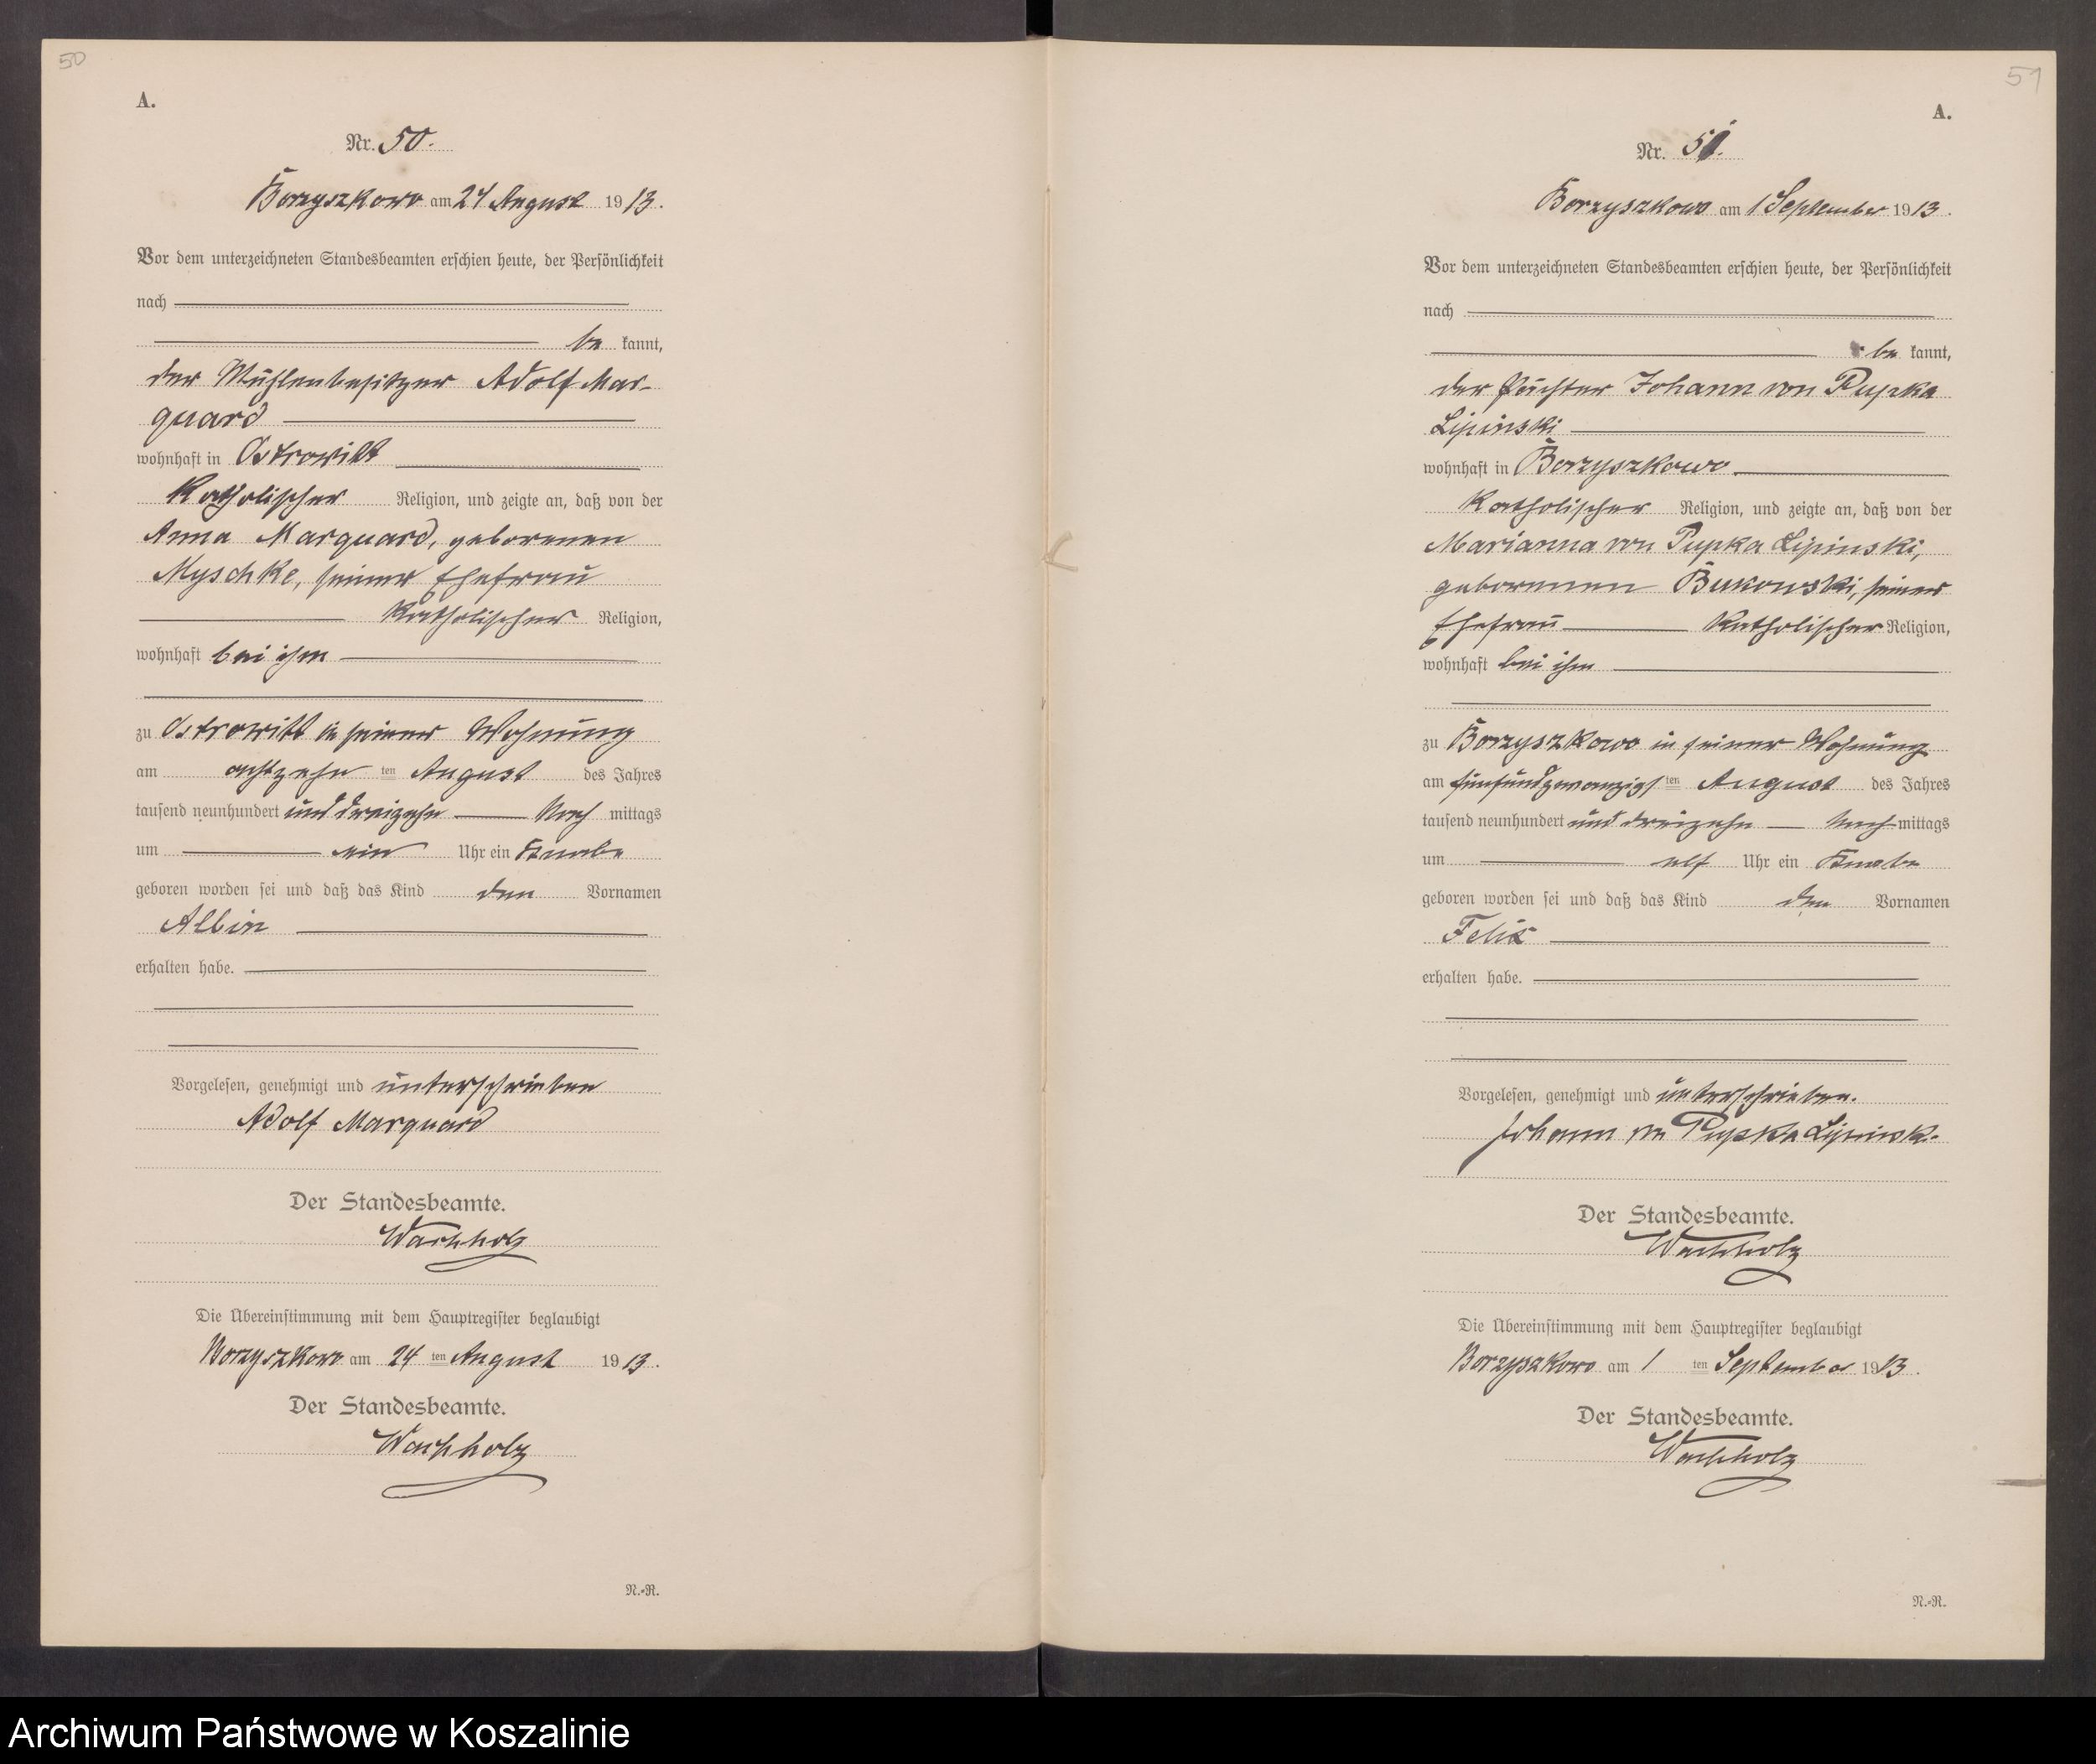 50
A.
Nr. 50.
Borzyszkowo am 24 August 1913.
Vor dem unterzeichneten Standesbeamten erschien heute, der Persönlichkeit
nach
be kannt,
der Mühlenbesitzer Adolf Mar-
quard
wohnhaft in Ostrowitt
Katholischer Religion, und zeigte an, daß von der
Anna Marquard, geborenen
Myschke, seiner Ehefrau
Katholischer Religion,
wohnhaft bei ihm
zu Ostrowitt in seiner Wohnung
am achtzehn ten August des Jahres
tausend neunhundert und dreizehn Nach mittags
um ein Uhr ein Knabe
geboren worden sei und daß das Kind den Vornamen
Albin
erhalten habe.
Vorgelesen, genehmigt und unterschrieben
Adolf Marquard
Der Standesbeamte.
Wachholz
Die Übereinstimmung mit dem Hauptregister beglaubigt
Borzyszkowo am 24 ten August 1913.
Der Standesbeamte.
Wachholz
N.-R.
51
A.
Nr. 51.
Borzyszkowo am 1 September 1913.
Vor dem unterzeichneten Standesbeamten erschien heute, der Persönlichkeit
nach
be kannt,
der Pächter Johann von Pupka
Lipinski
wohnhaft in Borzyszkowo
Katholischer Religion, und zeigte an, daß von der
Marianna von Pupka Lipinski,
geborenen Bukowski, seiner
Ehefrau Katholischer Religion,
wohnhaft bei ihm
zu Borzyszkowo in seiner Wohnung
am fünfundzwanzigs ten August des Jahres
tausend neunhundert und dreizehn Nach mittags
um elf Uhr ein Knabe
geboren worden sei und daß das Kind den Vornamen
Felix
erhalten habe.
Vorgelesen, genehmigt und unterschrieben.
Johann von Pupka Lipinski
Der Standesbeamte.
Wachholz
Die Übereinstimmung mit dem Hauptregister beglaubigt
Borzyszkowo am 1 ten September 1913.
Der Standesbeamte.
Wachholz
N.-R.
Archiwum Państwowe w Koszalinie